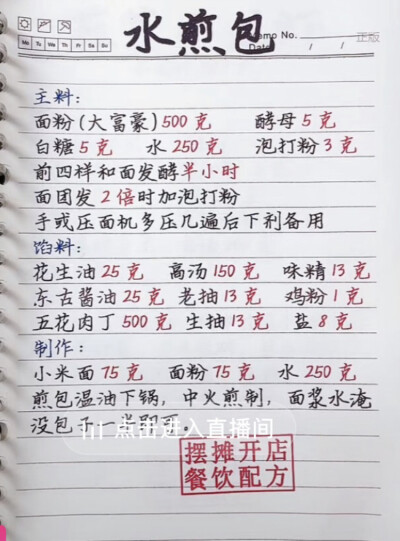 水煎包
Memo No.
Mo Tu We Th Fr Sa Su
Date / /
正版
主料:
面粉(大富豪)500克 酵母5克
白糖5克 水250克 泡打粉3克
前四样和面发酵半小时
面团发2倍时加泡打粉
手或压面机多压几遍后下剂备用
馅料:
花生油25克 高汤150克 味精13克
东古酱油25克 老抽13克 鸡粉1克
五花肉丁500克 生抽13克 盐8克
制作:
小米面75克 面粉75克 水250克
煎包温油下锅,中火煎制,面浆水淹
没包子一半即可。
点击进入直播间
摆摊开店
餐饮配方